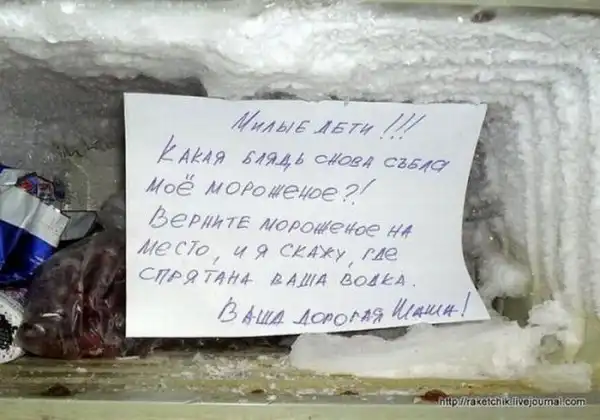 Милые дети!!!
Какая блядь снова съела
моё мороженое?!
Верните мороженое на
место, и я скажу, где
спрятана ваша водка.
Ваша дорогая Маша!
http://raketchik.livejournal.com